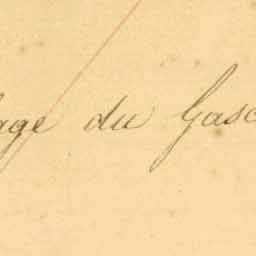 age du Gasc